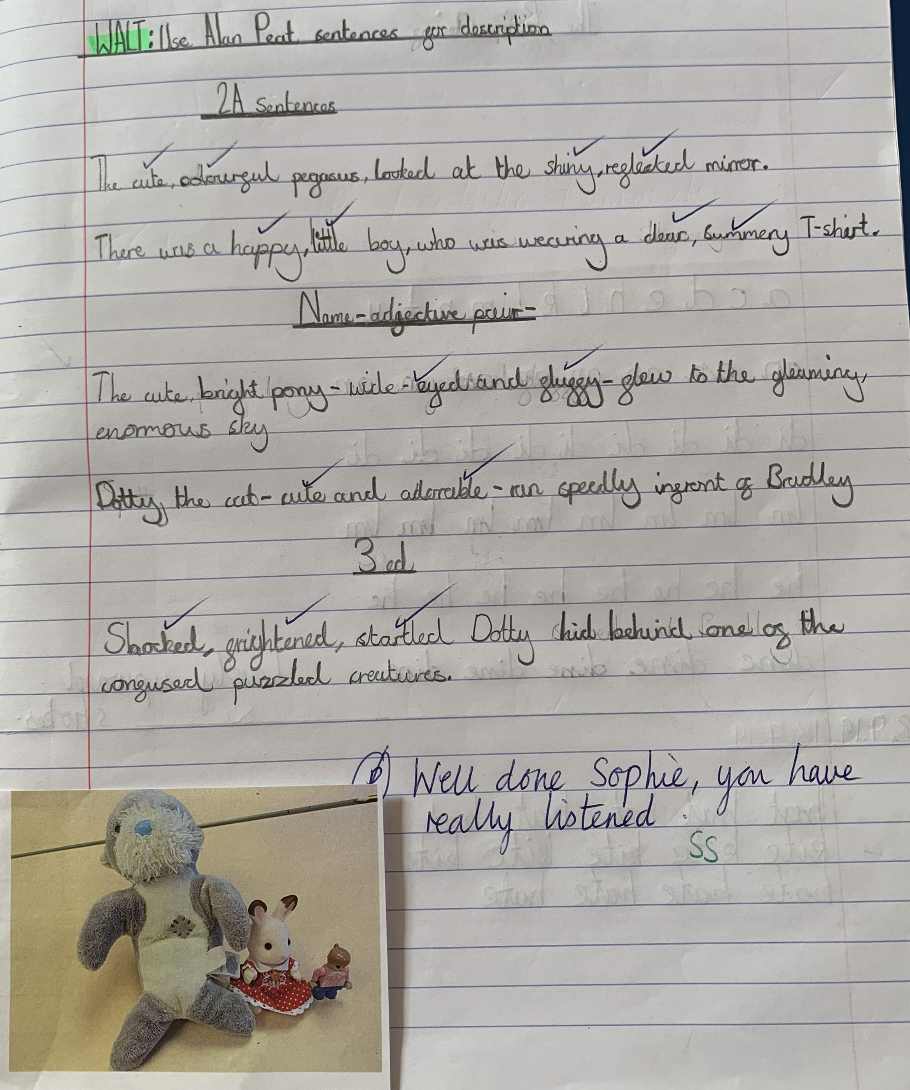 WALT: Use Alan Peat sentences for description
2A sentences
The cute, colourful pegasus, looked at the shiny, reglected mirror.
There was a happy, little boy, who was wearing a clear, summery T-shirt.
Name-adjective pair-
The cute, bright pony- wide-eyed and fluffy- flew to the gleaming,
enormous sky
Dotty, the cat- cute and adorable- ran speedly infront of Bradley
3 ed
Shocked, frightened, startled Dotty hid behind one of the
confused puzzled creatures.
Well done Sophie, you have
really listened.
SS